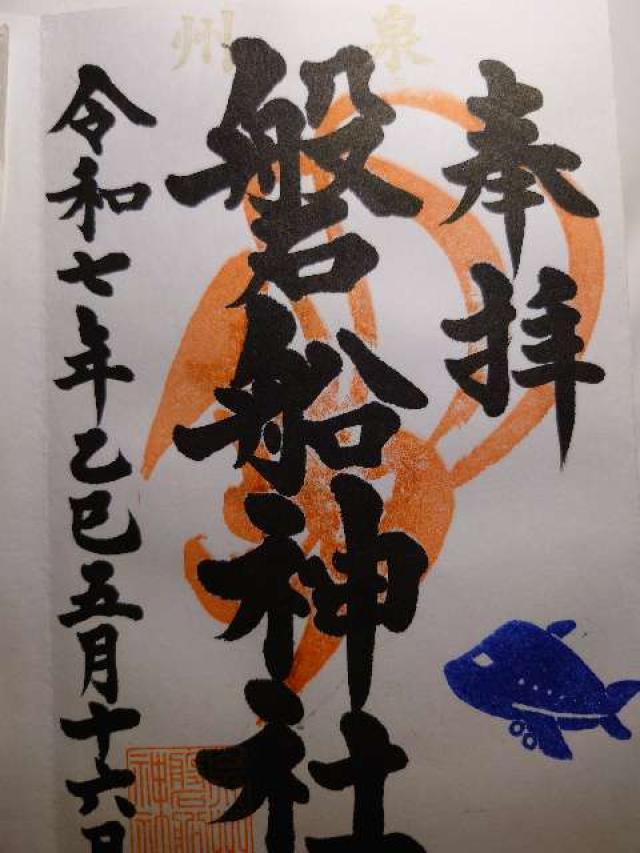 泉州
奉拝
磐船神社
令和七年乙巳五月十六日